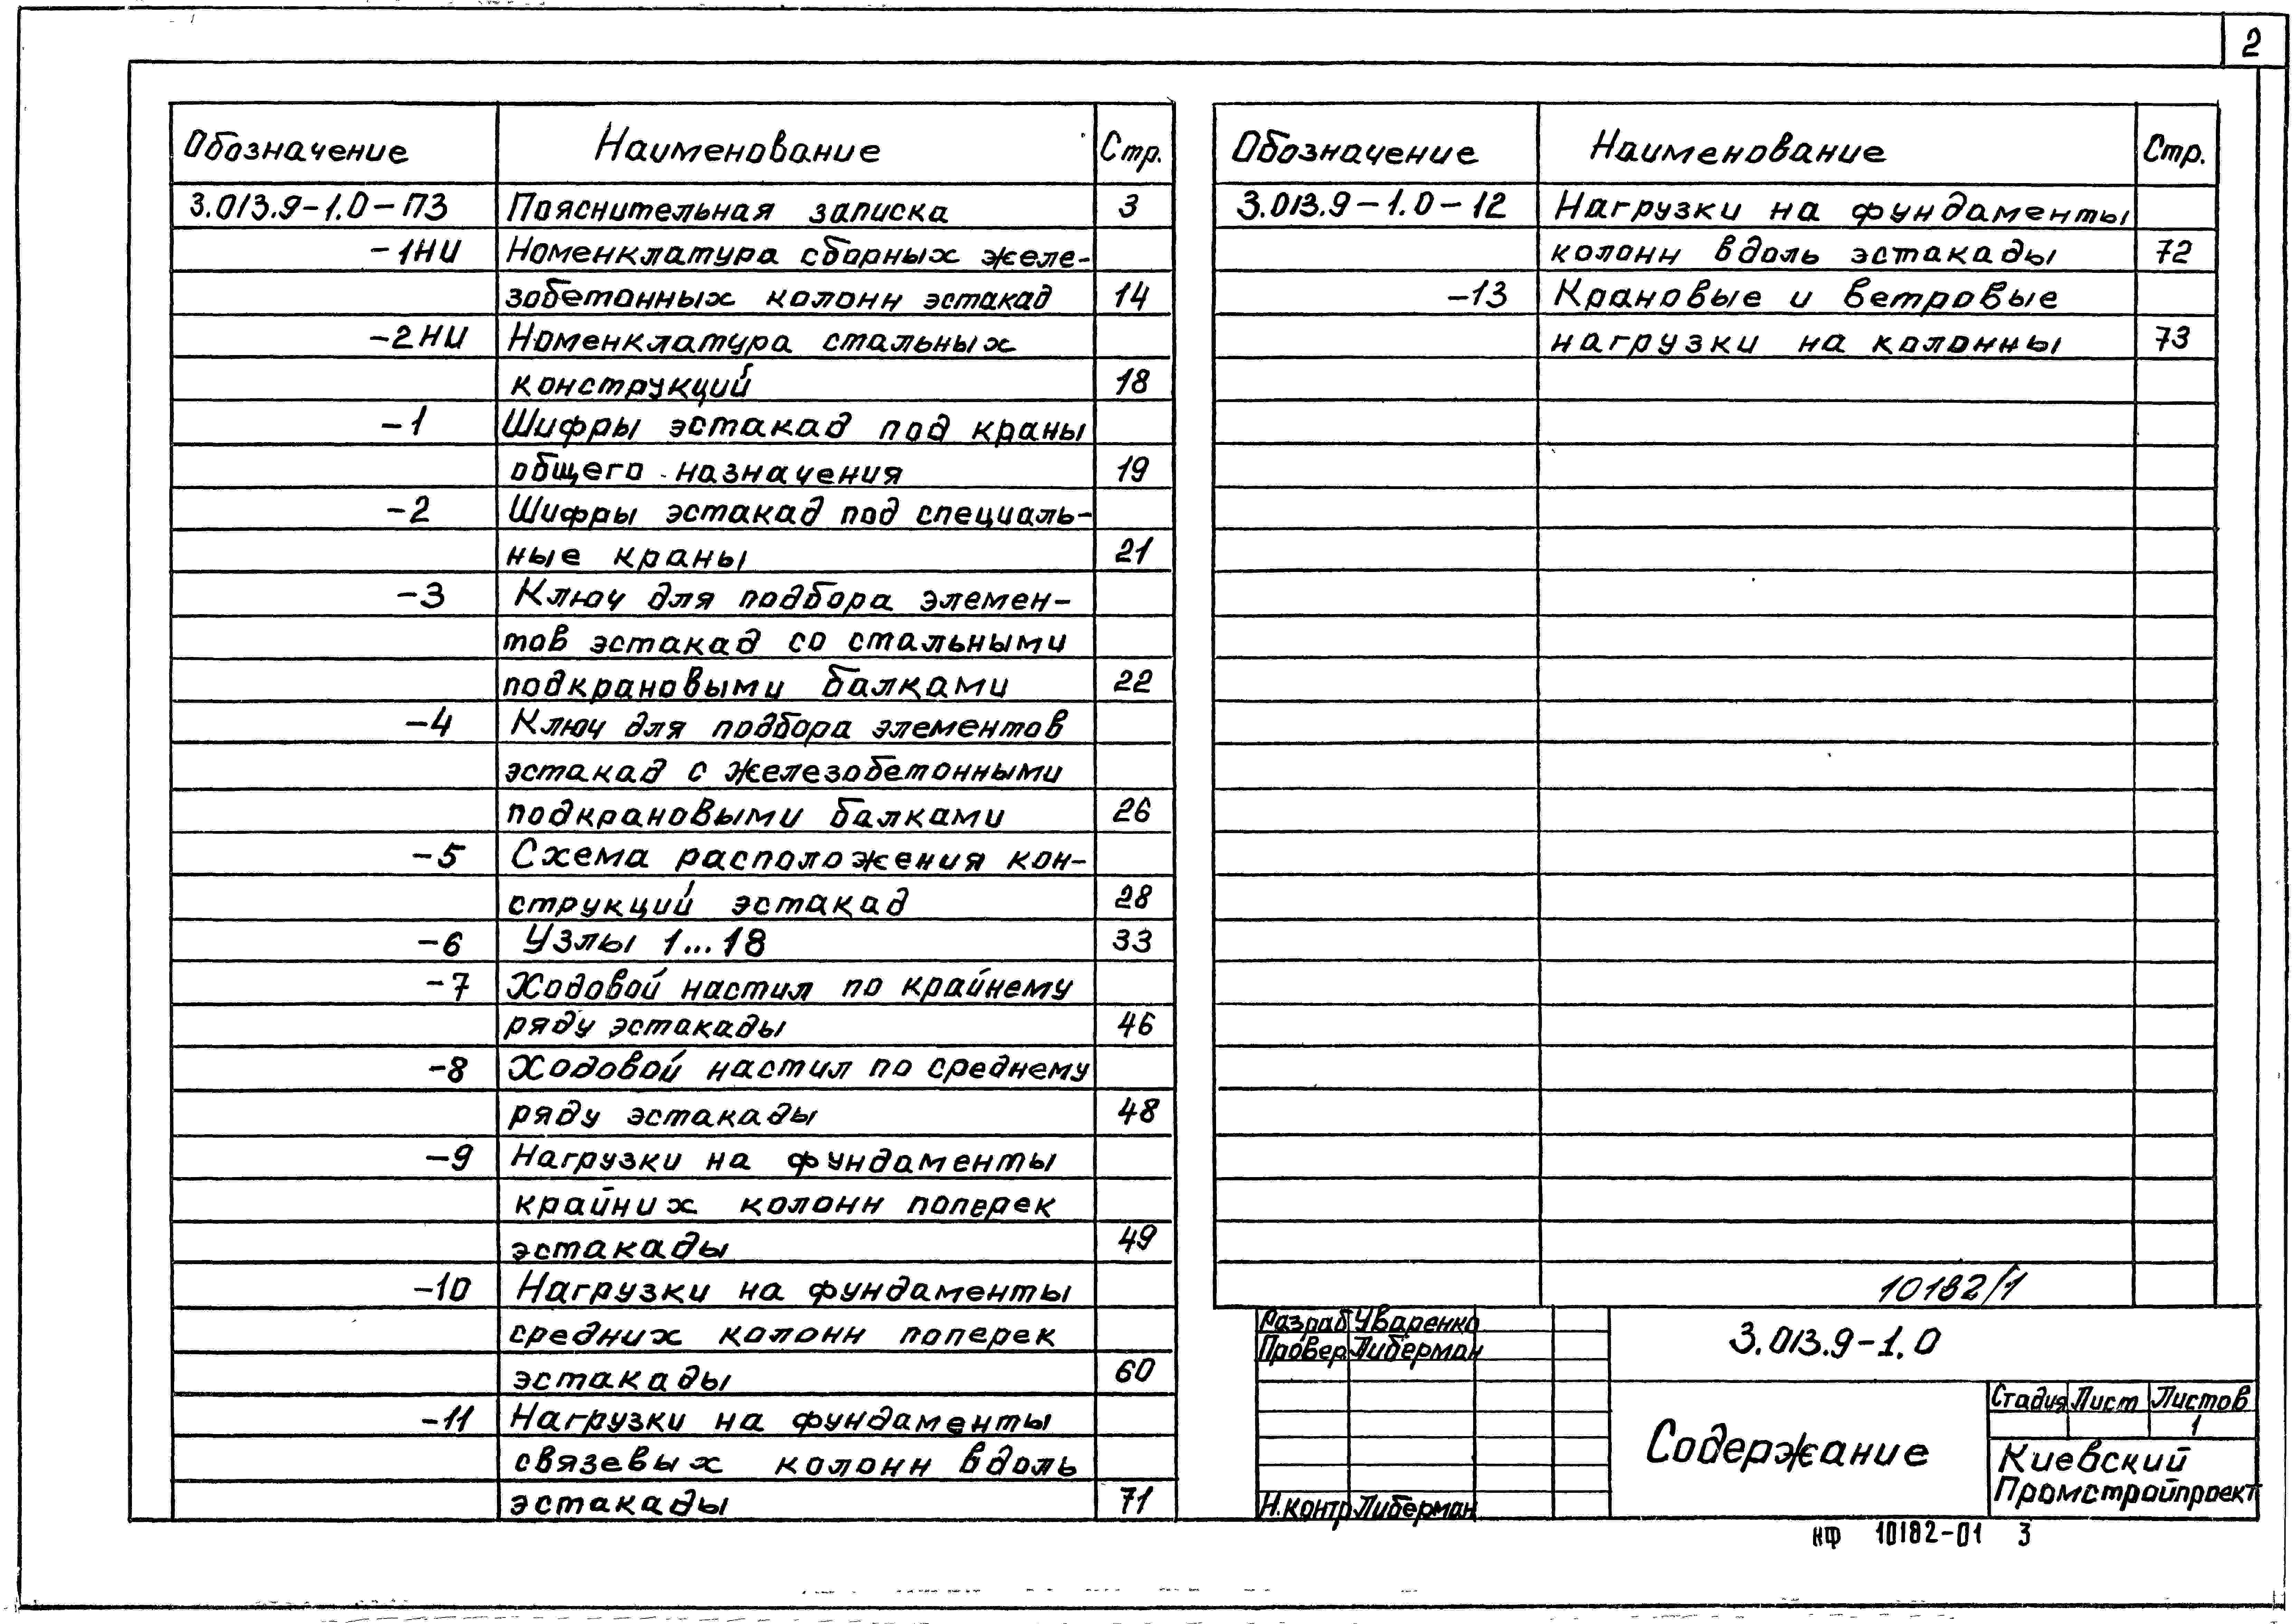 2
Обозначение Наименование Стр.
3.013.9-1.0-ПЗ Пояснительная записка 3
-1НИ Номенклатура сборных желе-
зобетонных колонн эстакад 14
-2НИ Номенклатура стальных
конструкций 18
-1 Шифры эстакад под краны
общего назначения 19
-2 Шифры эстакад под специаль-
ные краны 21
-3 Ключ для подбора элемен-
тов эстакад со стальными
подкрановыми балками 22
-4 Ключ для подбора элементов
эстакад с железобетонными
подкрановыми балками 26
-5 Схема расположения кон-
струкций эстакад 28
-6 Узлы 1...18 33
-7 Ходовой настил по крайнему
ряду эстакады 46
-8 Ходовой настил по среднему
ряду эстакады 48
-9 Нагрузки на фундаменты
крайних колонн поперек
эстакады 49
-10 Нагрузки на фундаменты
средних колонн поперек
эстакады 60
-11 Нагрузки на фундаменты
связевых колонн вдоль
эстакады 71
Обозначение Наименование Стр.
3.013.9-1.0-12 Нагрузки на фундаменты
колонн вдоль эстакады 72
-13 Крановые и ветровые
нагрузки на колонны 73
10182/1
Разраб Уваренко
Провер Либерман
Н.контр Либерман
3.013.9-1.0
Содержание
Стадия Лист Листов
1
Киевский
Промстройпроект
НФ 10182-01 3